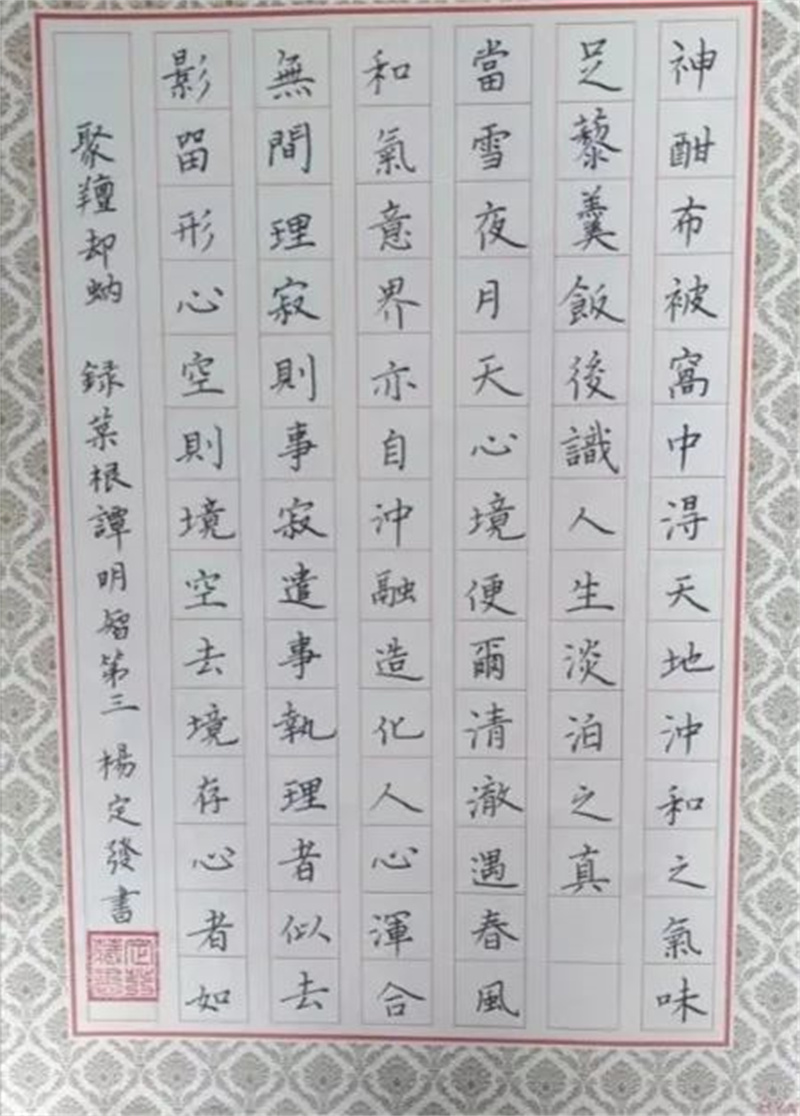 神酣布被窩中得天地沖和之氣味
足藜羹飯後識人生淡泊之真
當雪夜月天心境便爾清澈遇春風
和氣意界亦自沖融造化人心渾合
無間理寂則事寂遣事執理者似去
影留形心空則境空去境存心者如
聚羶却蚋 録菜根譚明智第三 楊定發書